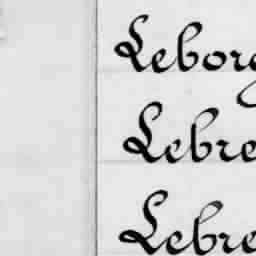 Leborg
Lebre
Lebre